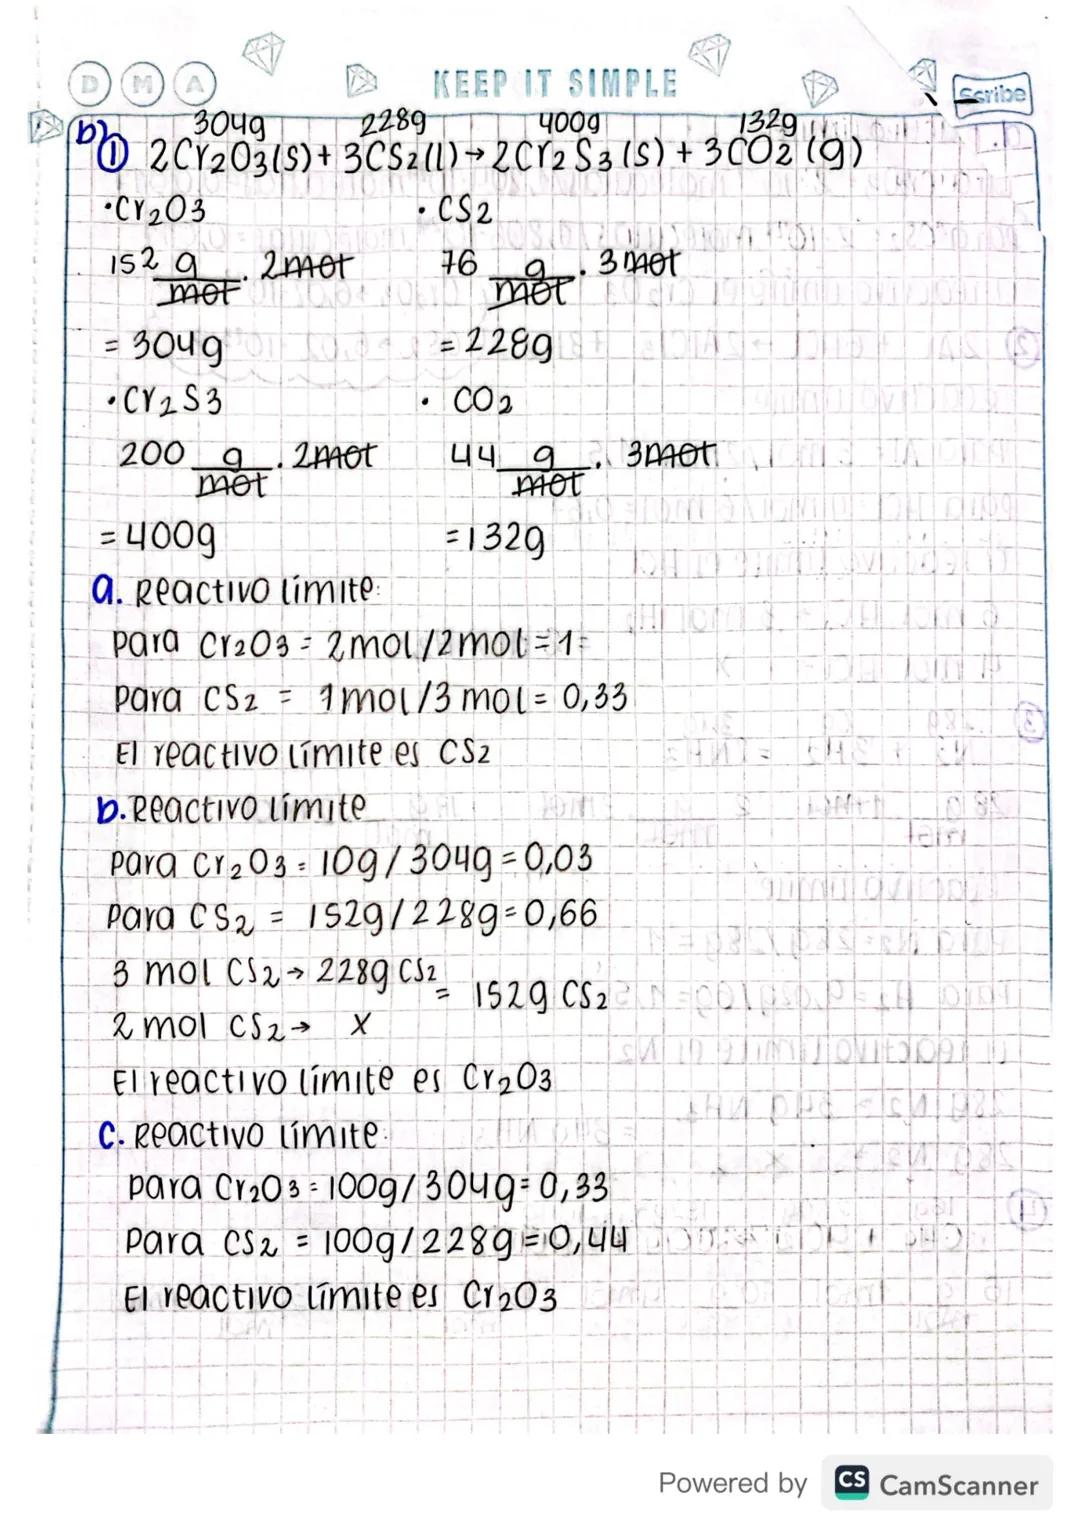 D M A
KEEP IT SIMPLE
Scribe
304g 228g 400g 132g
b) ① 2Cr2O3(s) + 3CS2(l) → 2Cr2S3(s) + 3CO2(g)
•Cr2O3 • CS2
152 g/mol . 2mol 76 g/mol . 3mol
= 304g = 228g
•Cr2S3 • CO2
200 g/mol . 2mol 44 g/mol . 3mol
= 400g =132g
a. Reactivo límite:
para Cr2O3 = 2mol/2mol = 1
para CS2 = 1mol/3mol = 0,33
El reactivo límite es CS2
b. Reactivo límite
para Cr2O3 = 10g/304g = 0,03
para CS2 = 152g/228g = 0,66
3 mol CS2 → 228g CS2
= 152g CS2
2 mol CS2 → X
El reactivo límite es Cr2O3
c. Reactivo límite:
para Cr2O3 = 100g/304g = 0,33
para CS2 = 100g/228g = 0,44
El reactivo límite es Cr2O3
Powered by CS CamScanner